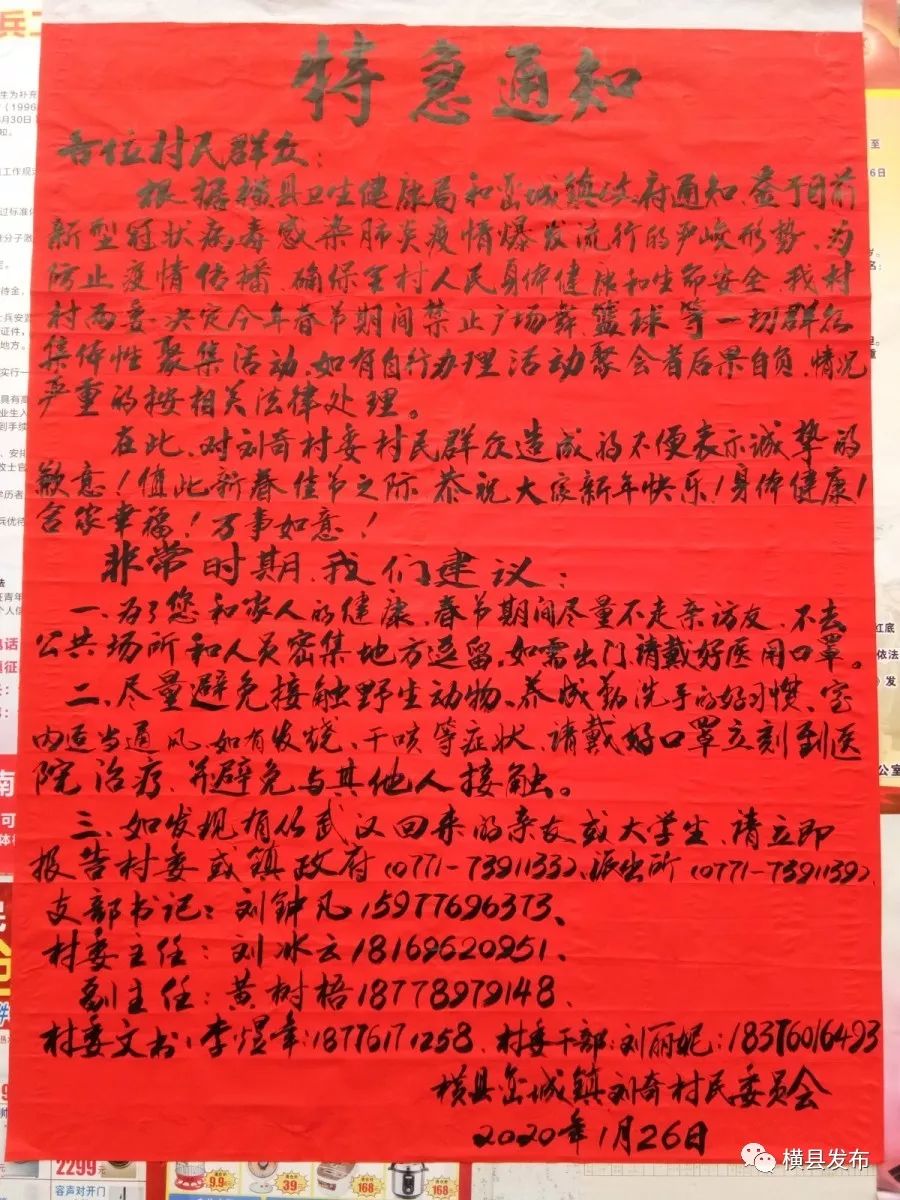 特急通知
各位村民群众：
根据横县卫生健康局和峦城镇政府通知，鉴于目前
新型冠状病毒感染肺炎疫情爆发流行的严峻形势、为
防止疫情传播，确保全村人民身体健康和生命安全，我村
村两委决定今年春节期间禁止广场舞、篮球等一切群众
集体性聚集活动，如有自行办理活动聚会者后果自负，情况
严重的按相关法律处理。
在此，对刘奇村委村民群众造成的不便表示诚挚的
歉意！值此新春佳节之际，恭祝大家新年快乐！身体健康！
合家幸福！万事如意！
非常时期，我们建议：
一、为了您和家人的健康，春节期间尽量不走亲访友，不去
公共场所和人员密集地方逗留，如需出门，请戴好医用口罩。
二、尽量避免接触野生动物、养成勤洗手的好习惯，室
内适当通风，如有发烧、干咳等症状，请戴好口罩立刻到医
院治疗，并避免与其他人接触。
三、如发现有从武汉回来的亲友或大学生，请立即
报告村委或镇政府（0771-7391133）、派出所（0771-7391139）、
支部书记：刘钟凡15977696373、
村委主任：刘冰云18169620951、
副主任：黄树梧18778979148、
村委文书：李煜华：18776171258、村委干部：刘丽妮：18376016493
横县峦城镇刘奇村民委员会
2020年1月26日
横县发布
2299元
9.9
39
168
168
容声对开门